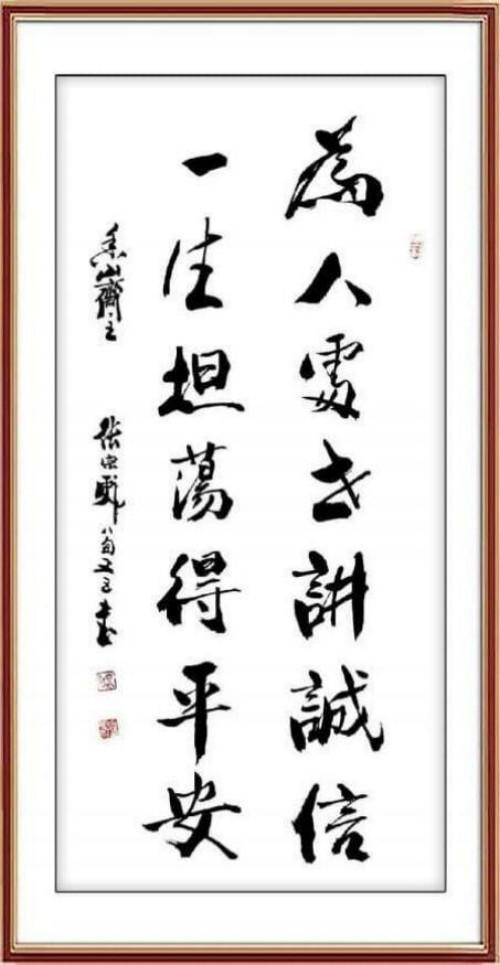 為人處世講誠信
一生坦蕩得平安
香山齋主
張 八旬又五書